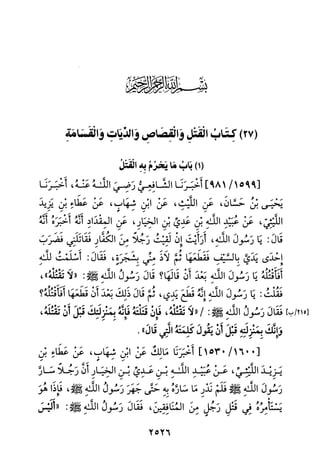 بسم الله الرحمن الرحيم
(٢٧) كِتَابُ الْقَتْلِ وَالْقِصَاصِ وَالدِّيَاتِ وَالْقَسَامَةِ
(١) بَابُ مَا يَحْرُمُ بِهِ الْقَتْلُ
[٩٨١/١٥٩٩] أَخْبَرَنَا الشَّافِعِيُّ رَضِيَ اللَّهُ عَنْهُ، أَخْبَرَنَا
يَحْيَى بْنُ حَسَّانَ، عَنِ اللَّيْثِ، عَنِ ابْنِ شِهَابٍ، عَنْ عَطَاءِ بْنِ يَزِيدَ
اللَّيْثِيِّ، عَنْ عُبَيْدِ اللَّهِ بْنِ عَدِيِّ بْنِ الْخِيَارِ، عَنِ الْمِقْدَادِ أَنَّهُ أَخْبَرَهُ أَنَّهُ
قَالَ: يَا رَسُولَ اللَّهِ، أَرَأَيْتَ إِنْ لَقِيتُ رَجُلًا مِنَ الْكُفَّارِ فَقَاتَلَنِي فَضَرَبَ
إِحْدَى يَدَيَّ بِالسَّيْفِ فَقَطَعَهَا ثُمَّ لَاذَ مِنِّي بِشَجَرَةٍ، فَقَالَ: أَسْلَمْتُ لِلَّهِ
أَفَأَقْتُلُهُ يَا رَسُولَ اللَّهِ بَعْدَ أَنْ قَالَهَا؟ قَالَ رَسُولُ اللَّهِ ﷺ: «لَا تَقْتُلْهُ»،
فَقُلْتُ: يَا رَسُولَ اللَّهِ إِنَّهُ قَطَعَ يَدِي، ثُمَّ قَالَ ذَلِكَ بَعْدَ أَنْ قَطَعَهَا أَفَأَقْتُلُهُ؟
فَقَالَ رَسُولُ اللَّهِ ﷺ: «لَا تَقْتُلْهُ، فَإِنْ قَتَلْتَهُ فَإِنَّهُ بِمَنْزِلَتِكَ قَبْلَ أَنْ تَقْتُلَهُ، [٢١٥/ب]
وَإِنَّكَ بِمَنْزِلَتِهِ قَبْلَ أَنْ يَقُولَ كَلِمَتَهُ الَّتِي قَالَ».
[١٥٣٠/١٦٠٠] أَخْبَرَنَا مَالِكٌ عَنِ ابْنِ شِهَابٍ، عَنْ عَطَاءِ بْنِ
يَزِيدَ اللَّيْثِيِّ، عَنْ عُبَيْدِ اللَّهِ بْنِ عَدِيِّ بْنِ الْخِيَارِ أَنَّ رَجُلًا سَارَّ
رَسُولَ اللَّهِ ﷺ فَلَمْ نَدْرِ مَا سَارَّهُ بِهِ حَتَّى جَهَرَ رَسُولُ اللَّهِ ﷺ، فَإِذَا هُوَ
يَسْتَأْمِرُهُ فِي قَتْلِ رَجُلٍ مِنَ الْمُنَافِقِينَ، فَقَالَ رَسُولُ اللَّهِ ﷺ: «أَلَيْسَ
٢٥٢٦